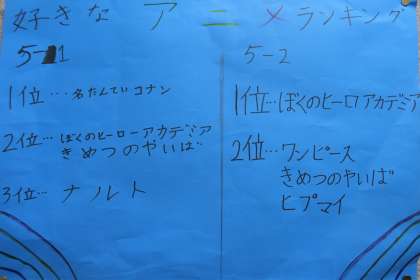 好きな アニメランキング
5-1
1位…名たんていコナン
2位…ぼくのヒーローアカデミア
きめつのやいば
3位…ナルト
5-2
1位…ぼくのヒーロアカデミア
2位…ワンピース
きめつのやいば
ヒプマイ